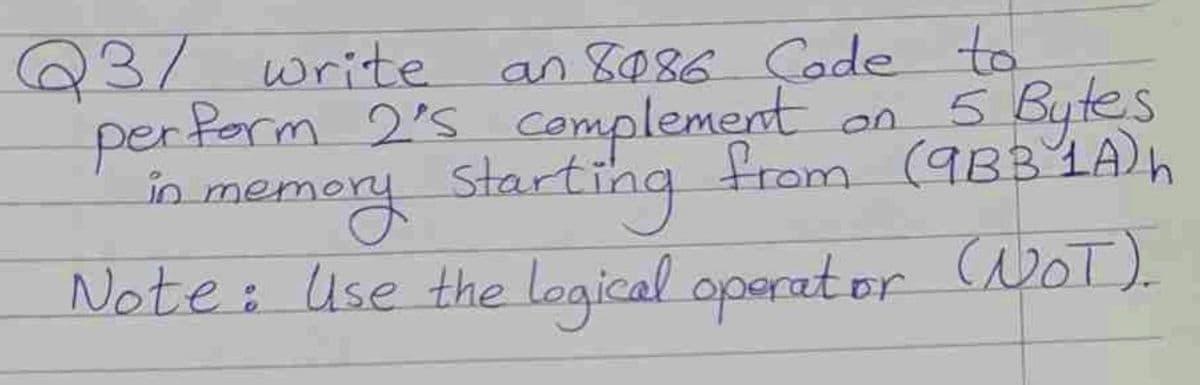 Q3/ write an 8086 Code to
perform 2's complement on 5 Bytes
in memory starting from (9BB1A)h
Note: Use the logical operator (NOT).